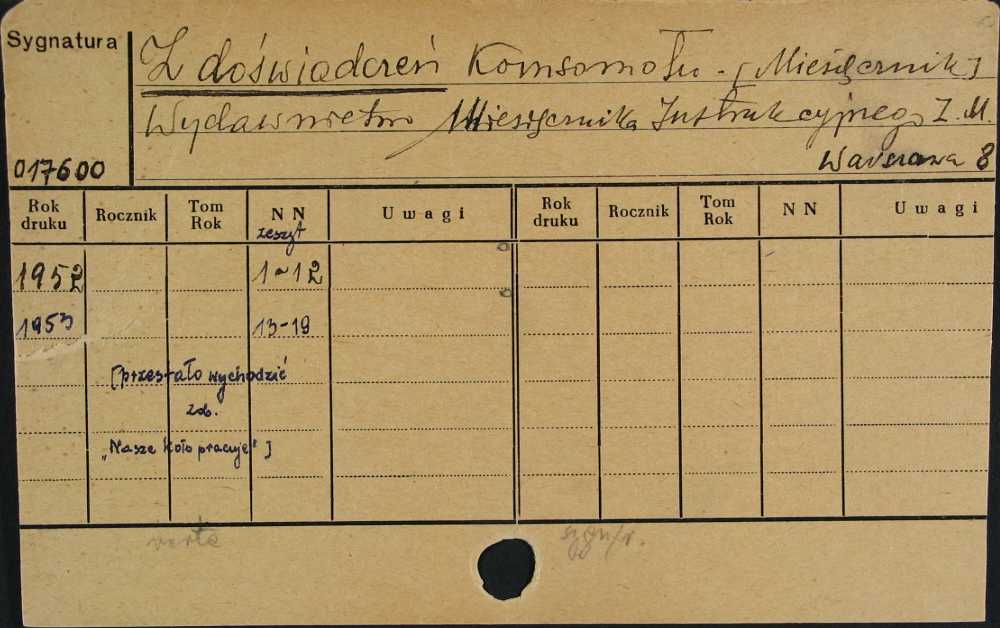 Sygnatura
Z doświadczeń Komsomołu. [Miesięcznik]
Wydawnictwo Miesięcznika Instrukcyjnego Z. M.
Warszawa 8
017600
Rok druku Rocznik Tom Rok NN Uwagi Rok druku Rocznik Tom Rok NN Uwagi
zeszyt
1952 1-12
1953 13-19
[przestało wychodzić
zob.
„Nasze Koło pracuje"]